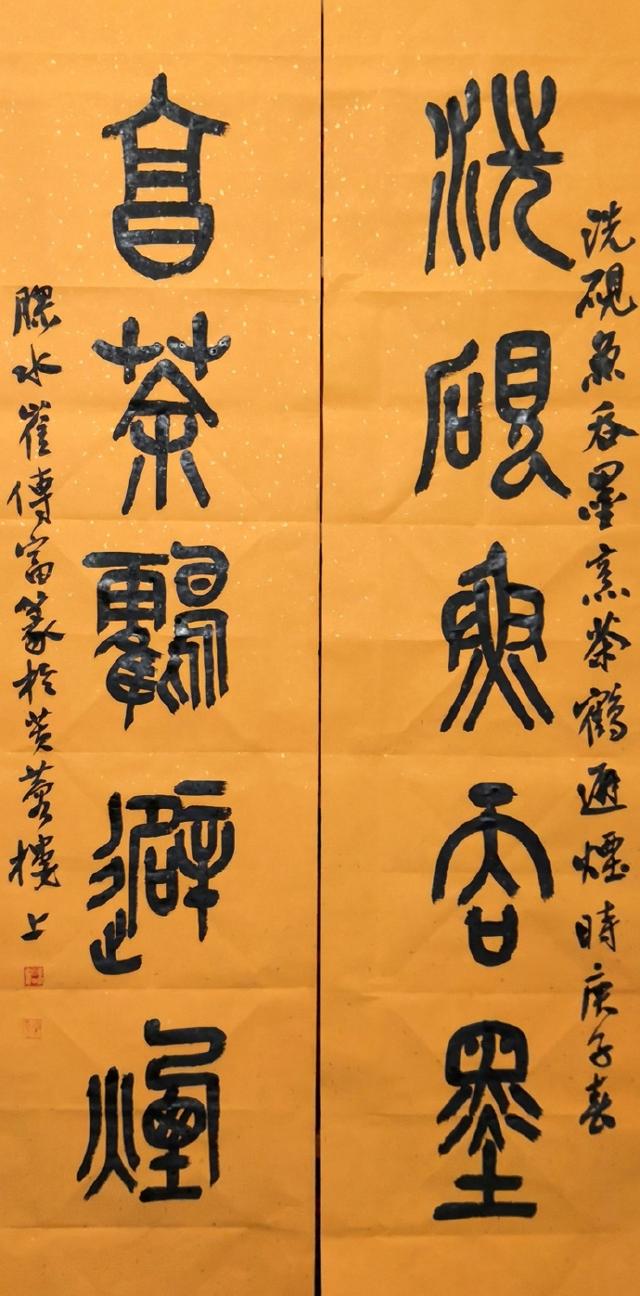 洗硯魚吞墨烹茶鶴避煙時庚子春
洗硯魚吞墨
烹茶鶴避煙
膠水崔傳富篆於芙蓉樓上